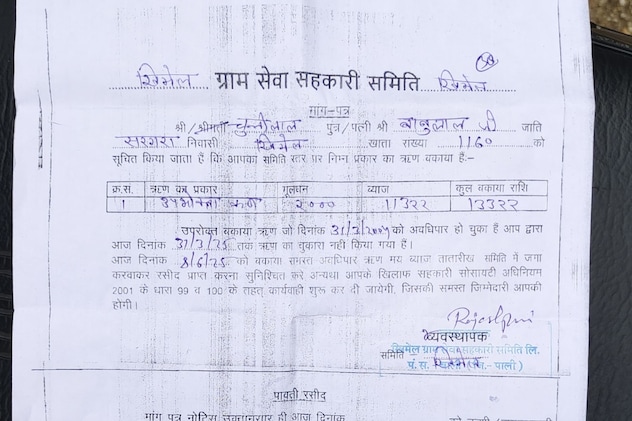 खिमेल ग्राम सेवा सहकारी समिति खिमेल
मांग-पत्र
श्री/श्रीमती चुन्नीलाल पुत्र/पत्नी श्री बाबुलाल जी जाति
सरगरा निवासी खिमेल खाता संख्या 1160 को
सूचित किया जाता है कि आपका समिति स्तर पर निम्न प्रकार का ऋण बकाया है:-
क्र.सं. ऋण का प्रकार मूलधन ब्याज कुल बकाया राशि
1 ऋण २००० 11322 13322
उपरोक्त बकाया ऋण जो दिनांक 31/3/2009 को अवधिपार हो चुका है आप द्वारा
आज दिनांक 31/3/25 तक ऋण का चुकारा नहीं किया गया है।
आज दिनांक 8/6/25 को बकाया समस्त अवधिपार ऋण मय ब्याज तातारीख समिति में जमा
करवाकर रसीद प्राप्त करना सुनिश्चित करे अन्यथा आपके खिलाफ सहकारी सोसायटी अधिनियम
2001 के धारा 99 व 100 के तहत् कार्यवाही शुरू कर दी जायेगी, जिसकी समस्त जिम्मेदारी आपकी
होगी।
व्यवस्थापक
खिमेल ग्राम सेवा सहकारी समिति लि.
समिति
पं.स. (जि.- पाली)
पावती रसीद
मांग पत्र नोटिस उक्तानुसार ही आज दिनांक